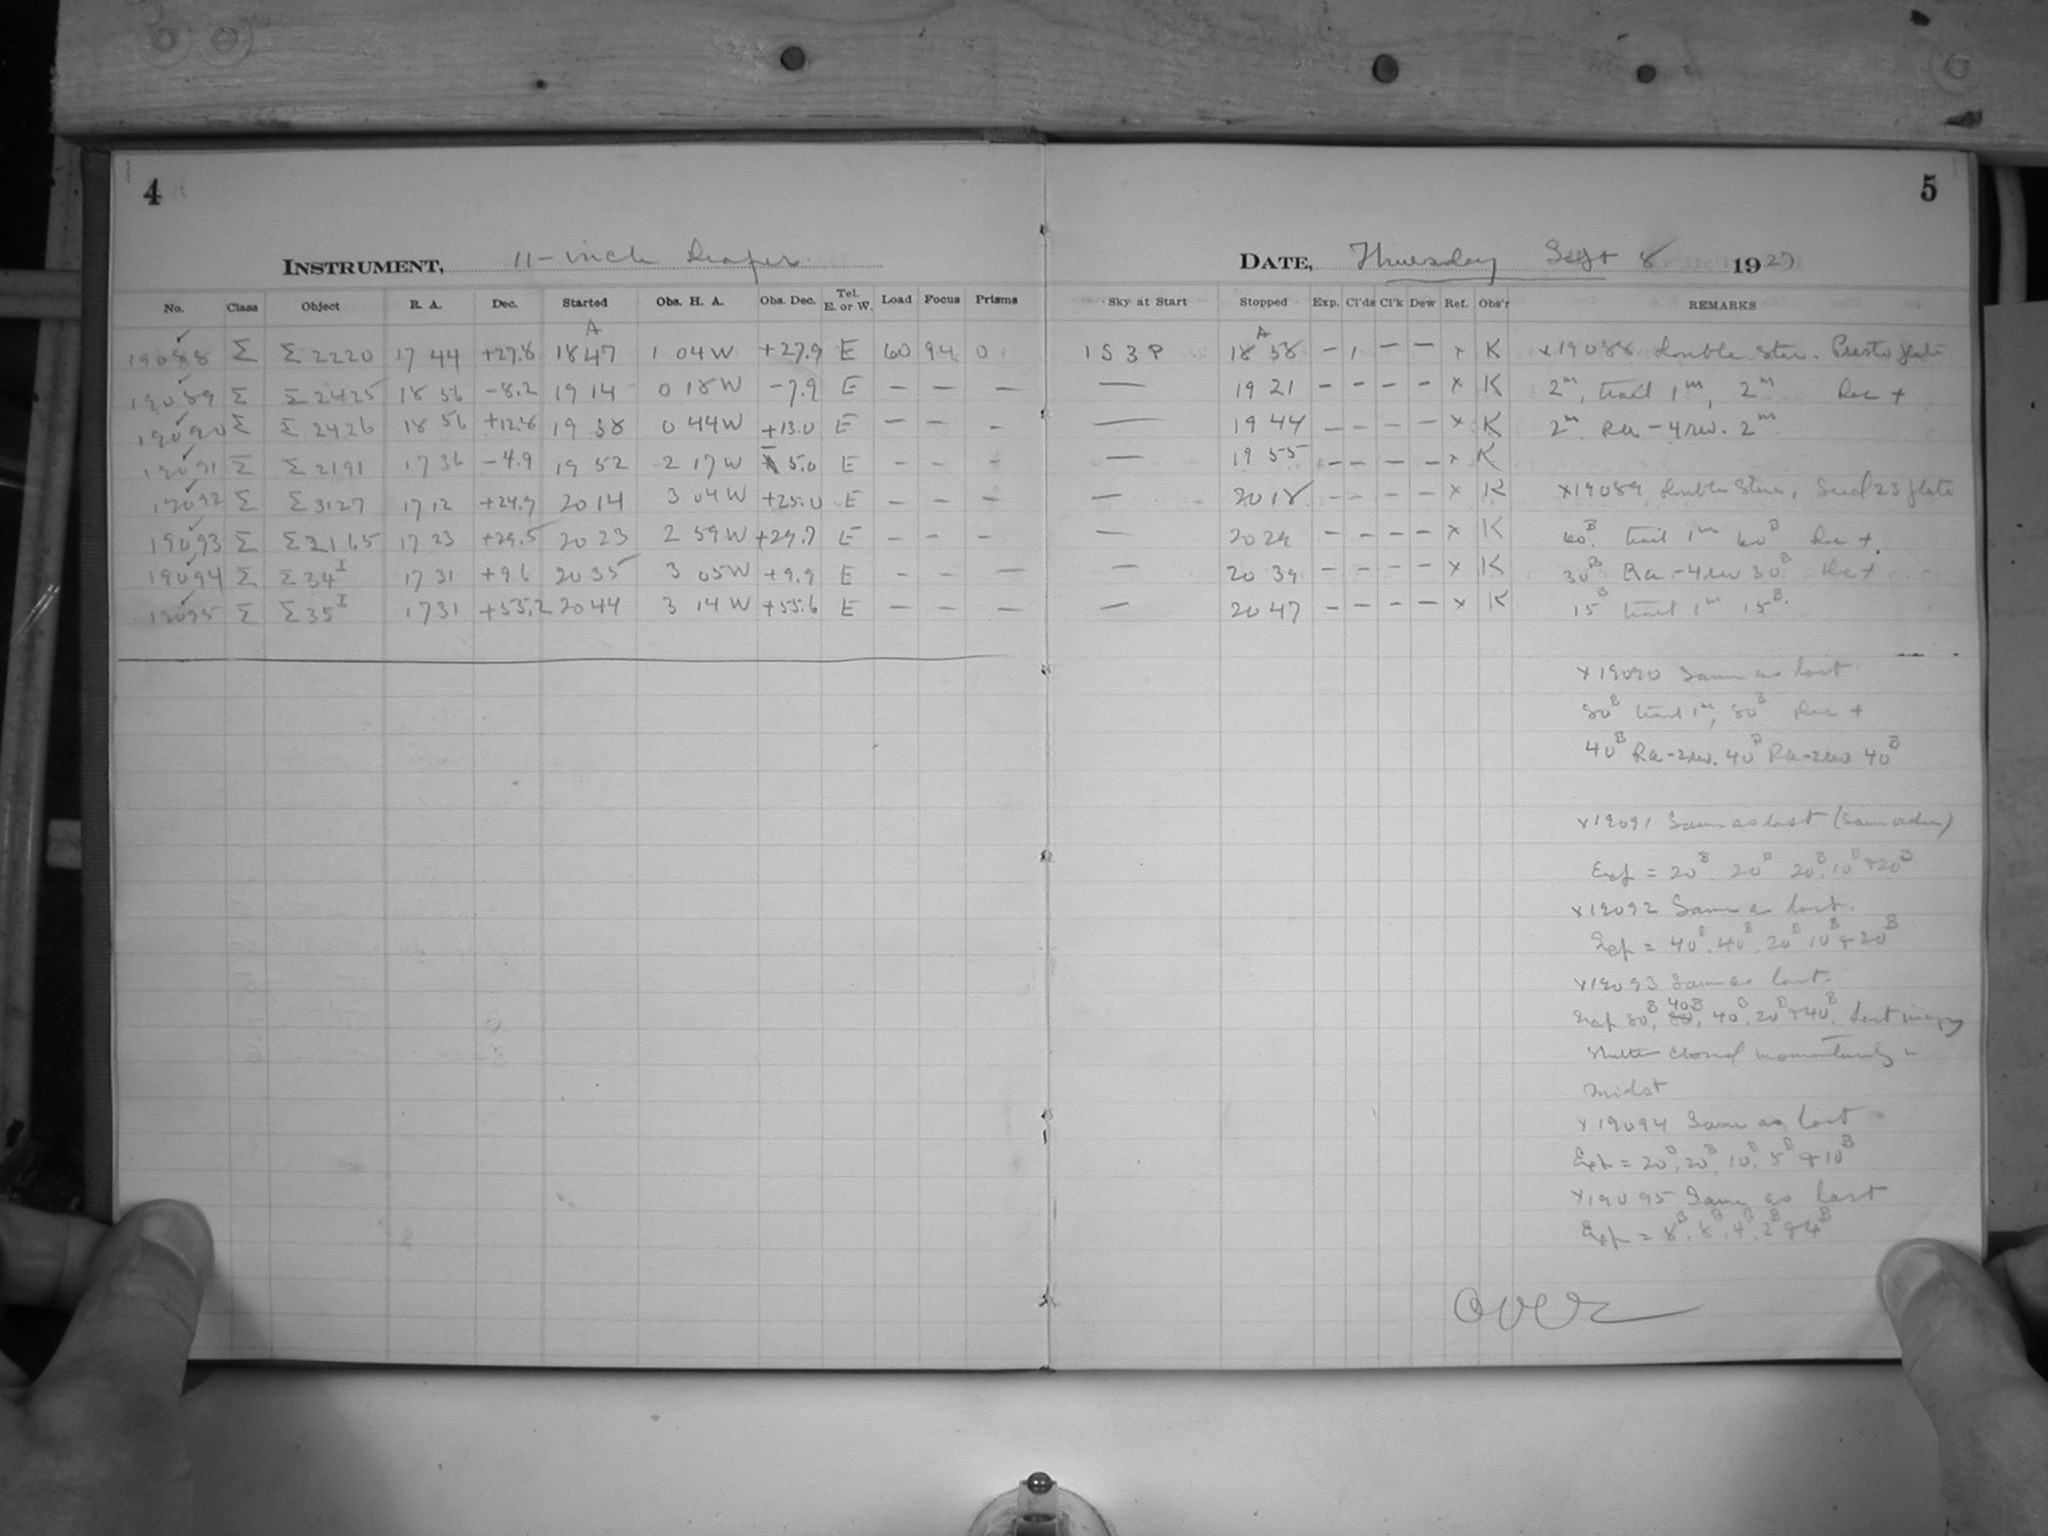 4
5
INSTRUMENT, 11-inch Draper
DATE, Thursday Sept 8 1927
No. Class Object R. A. Dec. Started Obs. H. A. Obs. Dec. Tel. E. or W. Load Focus Prisms Sky at Start Stopped Exp. Cl'ds Cl'k Dew Ref. Obs'r REMARKS
A A
19088 Σ Σ2220 17 44 +27.8 18 47 1 04W +27.9 E 60 94 0 1 S 3 P 18 58 - 1 - - x K x19088 Double Star. Presto plate
19089 Σ Σ2425 18 56 -8.2 19 14 0 18W -7.9 E - - - - 19 21 - - - - x K 2m, trail 1m, 2m Dec +
19090 Σ Σ2426 18 56 +12.8 19 38 0 44W +13.0 E - - - - 19 44 - - - - x K 2m Ra -4 rev. 2m
19091 Σ Σ2191 17 36 -4.9 19 52 2 17W -5.0 E - - - - 19 55 - - - - x K
19092 Σ Σ3127 17 12 +24.9 20 14 3 04W +25.0 E - - - - 20 18 - - - - x K x19089 Double Star, Seed 23 plate
19093 Σ Σ2165 17 23 +29.5 20 23 2 59W +29.7 E - - - - 20 29 - - - - x K 60B trail 1m 60B Dec +
19094 Σ Σ34I 17 31 +9.6 20 35 3 05W +9.9 E - - - - 20 39 - - - - x K 30B Ra -4 rev 30B Dec +
19095 Σ Σ35I 17 31 +55.2 20 44 3 14W +55.6 E - - - - 20 47 - - - - x K 15B trail 1m 15B.
x19090 Same as last
80B trail 1m, 80B Dec +
40B Ra -2 rev. 40B Ra -2 rev 40B
x19091 Same as last (Same order)
Exp = 20B. 20B 20B. 10B + 20B
x19092 Same as last.
Exp = 40B. 40B. 20B 10B + 20B
x19093 Same as last.
Exp 80B, 40B, 40B. 20B + 40B. Last image
shutter closed momentarily in
midst
x19094 Same as last
Exp = 20B, 20B, 10B. 5B + 10B
x19095 Same as last
Exp = 8B. 8B. 4B. 2B + 4B
over